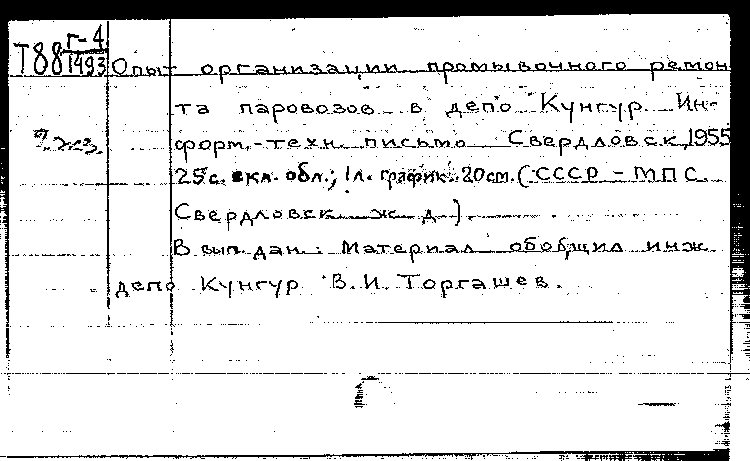 Т88 Г-4
1493
Опыт организации промывочного ремон
та паровозов в депо Кунгур. Ин-
форм.-техн. письмо Свердловск, 1955
2 экз.
25 с. вкл. обл.; 1 л. график. 20 см. (СССР - МПС.
Свердловск. ж. д.).
В вып. дан.: Материал обобщил инж.
депо Кунгур В. И. Торгашев.